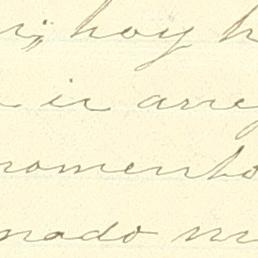 hoy h
ir arreg
momento
nado m